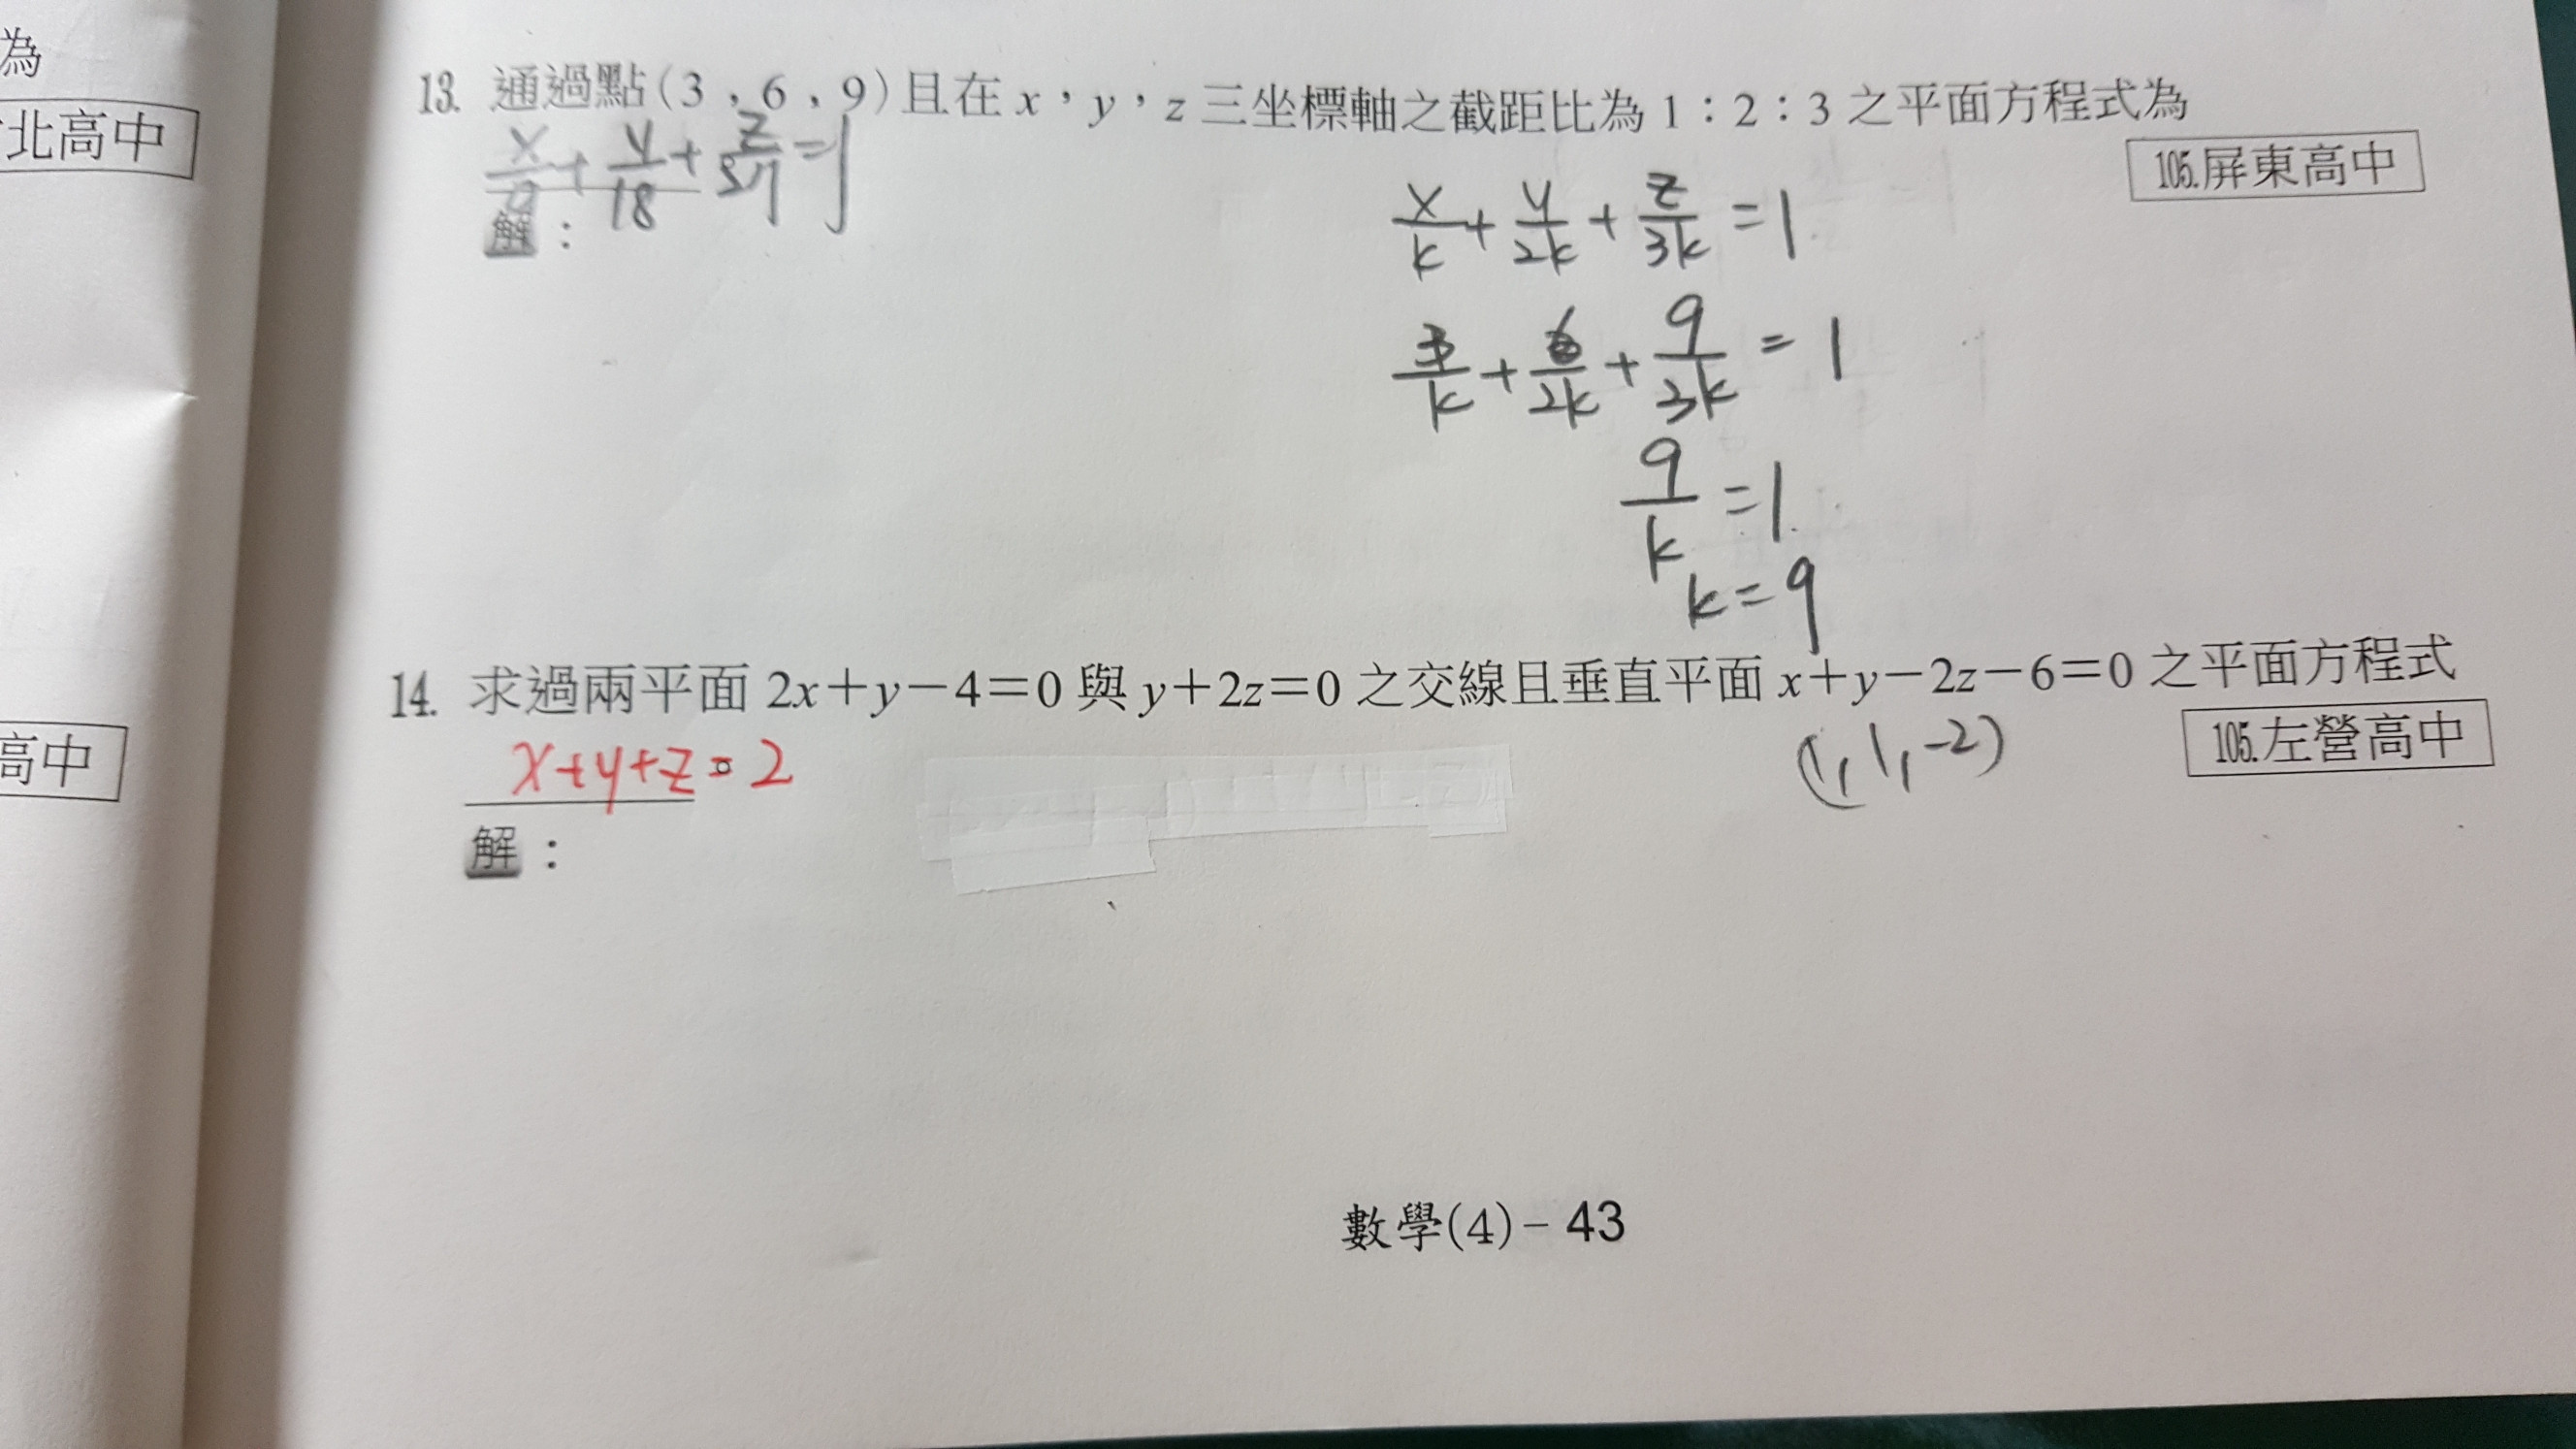 為
北高中
高中
13. 通過點(3，6，9)且在x，y，z三坐標軸之截距比為1：2：3之平面方程式為
105.屏東高中
x/9+y/18+z/27=1
解：
x/k+y/2k+z/3k=1
3/k+6/2k+9/3k=1
9/k=1
k=9
14. 求過兩平面2x+y-4=0與y+2z=0之交線且垂直平面x+y-2z-6=0之平面方程式
(1,1,-2)
105.左營高中
x+y+z=2
解：
數學(4)-43